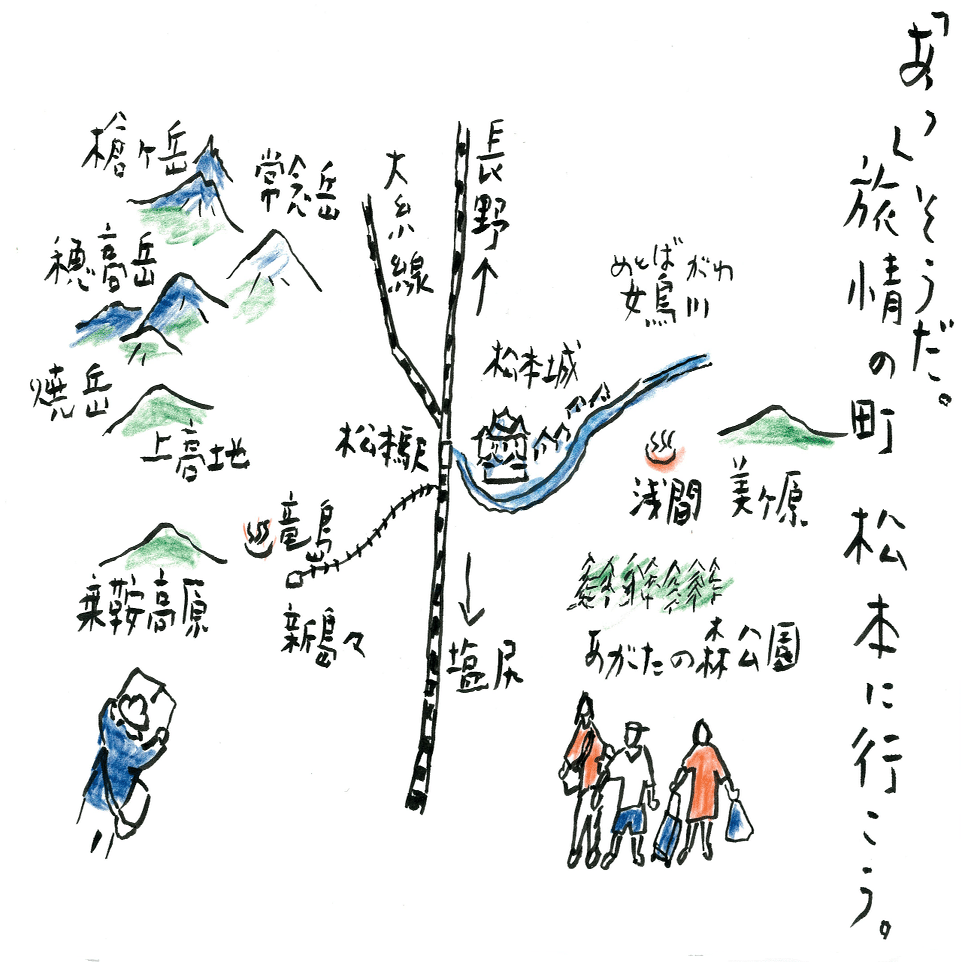 「あっ」そうだ。
旅情の町 松本に行こう。
槍ヶ岳
常念岳
大糸線
長野↑
穂高岳
めとばがわ
女鳥川
焼岳
上高地
松本駅
松本城
浅間
美ヶ原
竜島
乗鞍高原
新島々
↓塩尻
あがたの森公園